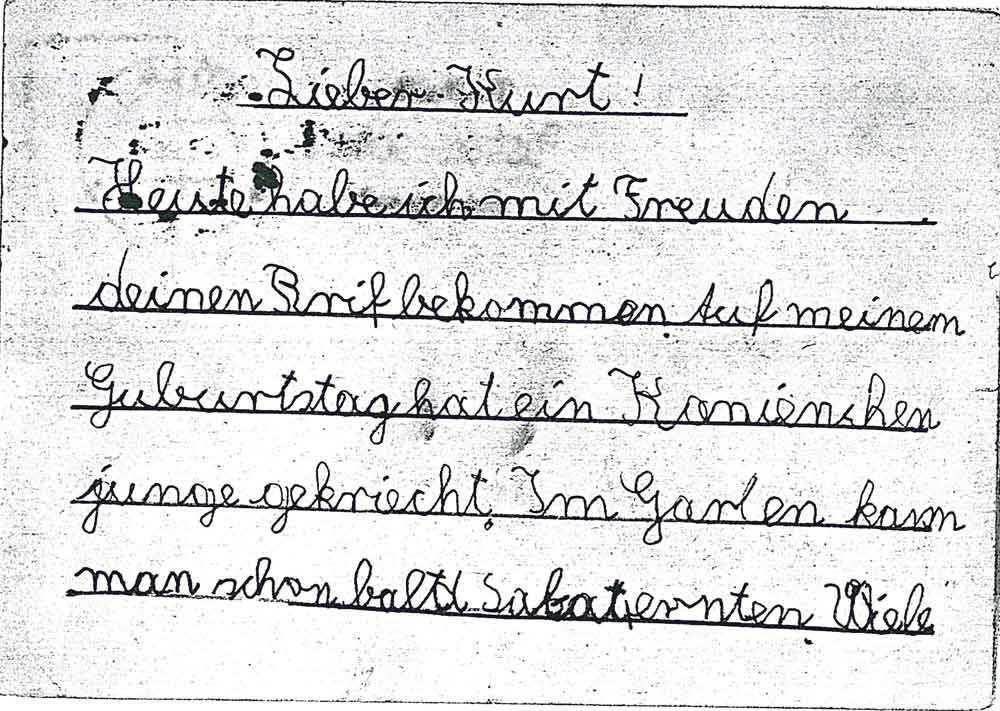 Lieber Kurt!
Heute habe ich mit Freuden
deinen Brif bekommen Auf meinem
Guburtstag hat ein Kanienchen
junge gekriecht. Im Garten kann
man schon baltd Salat ernten. Wiele